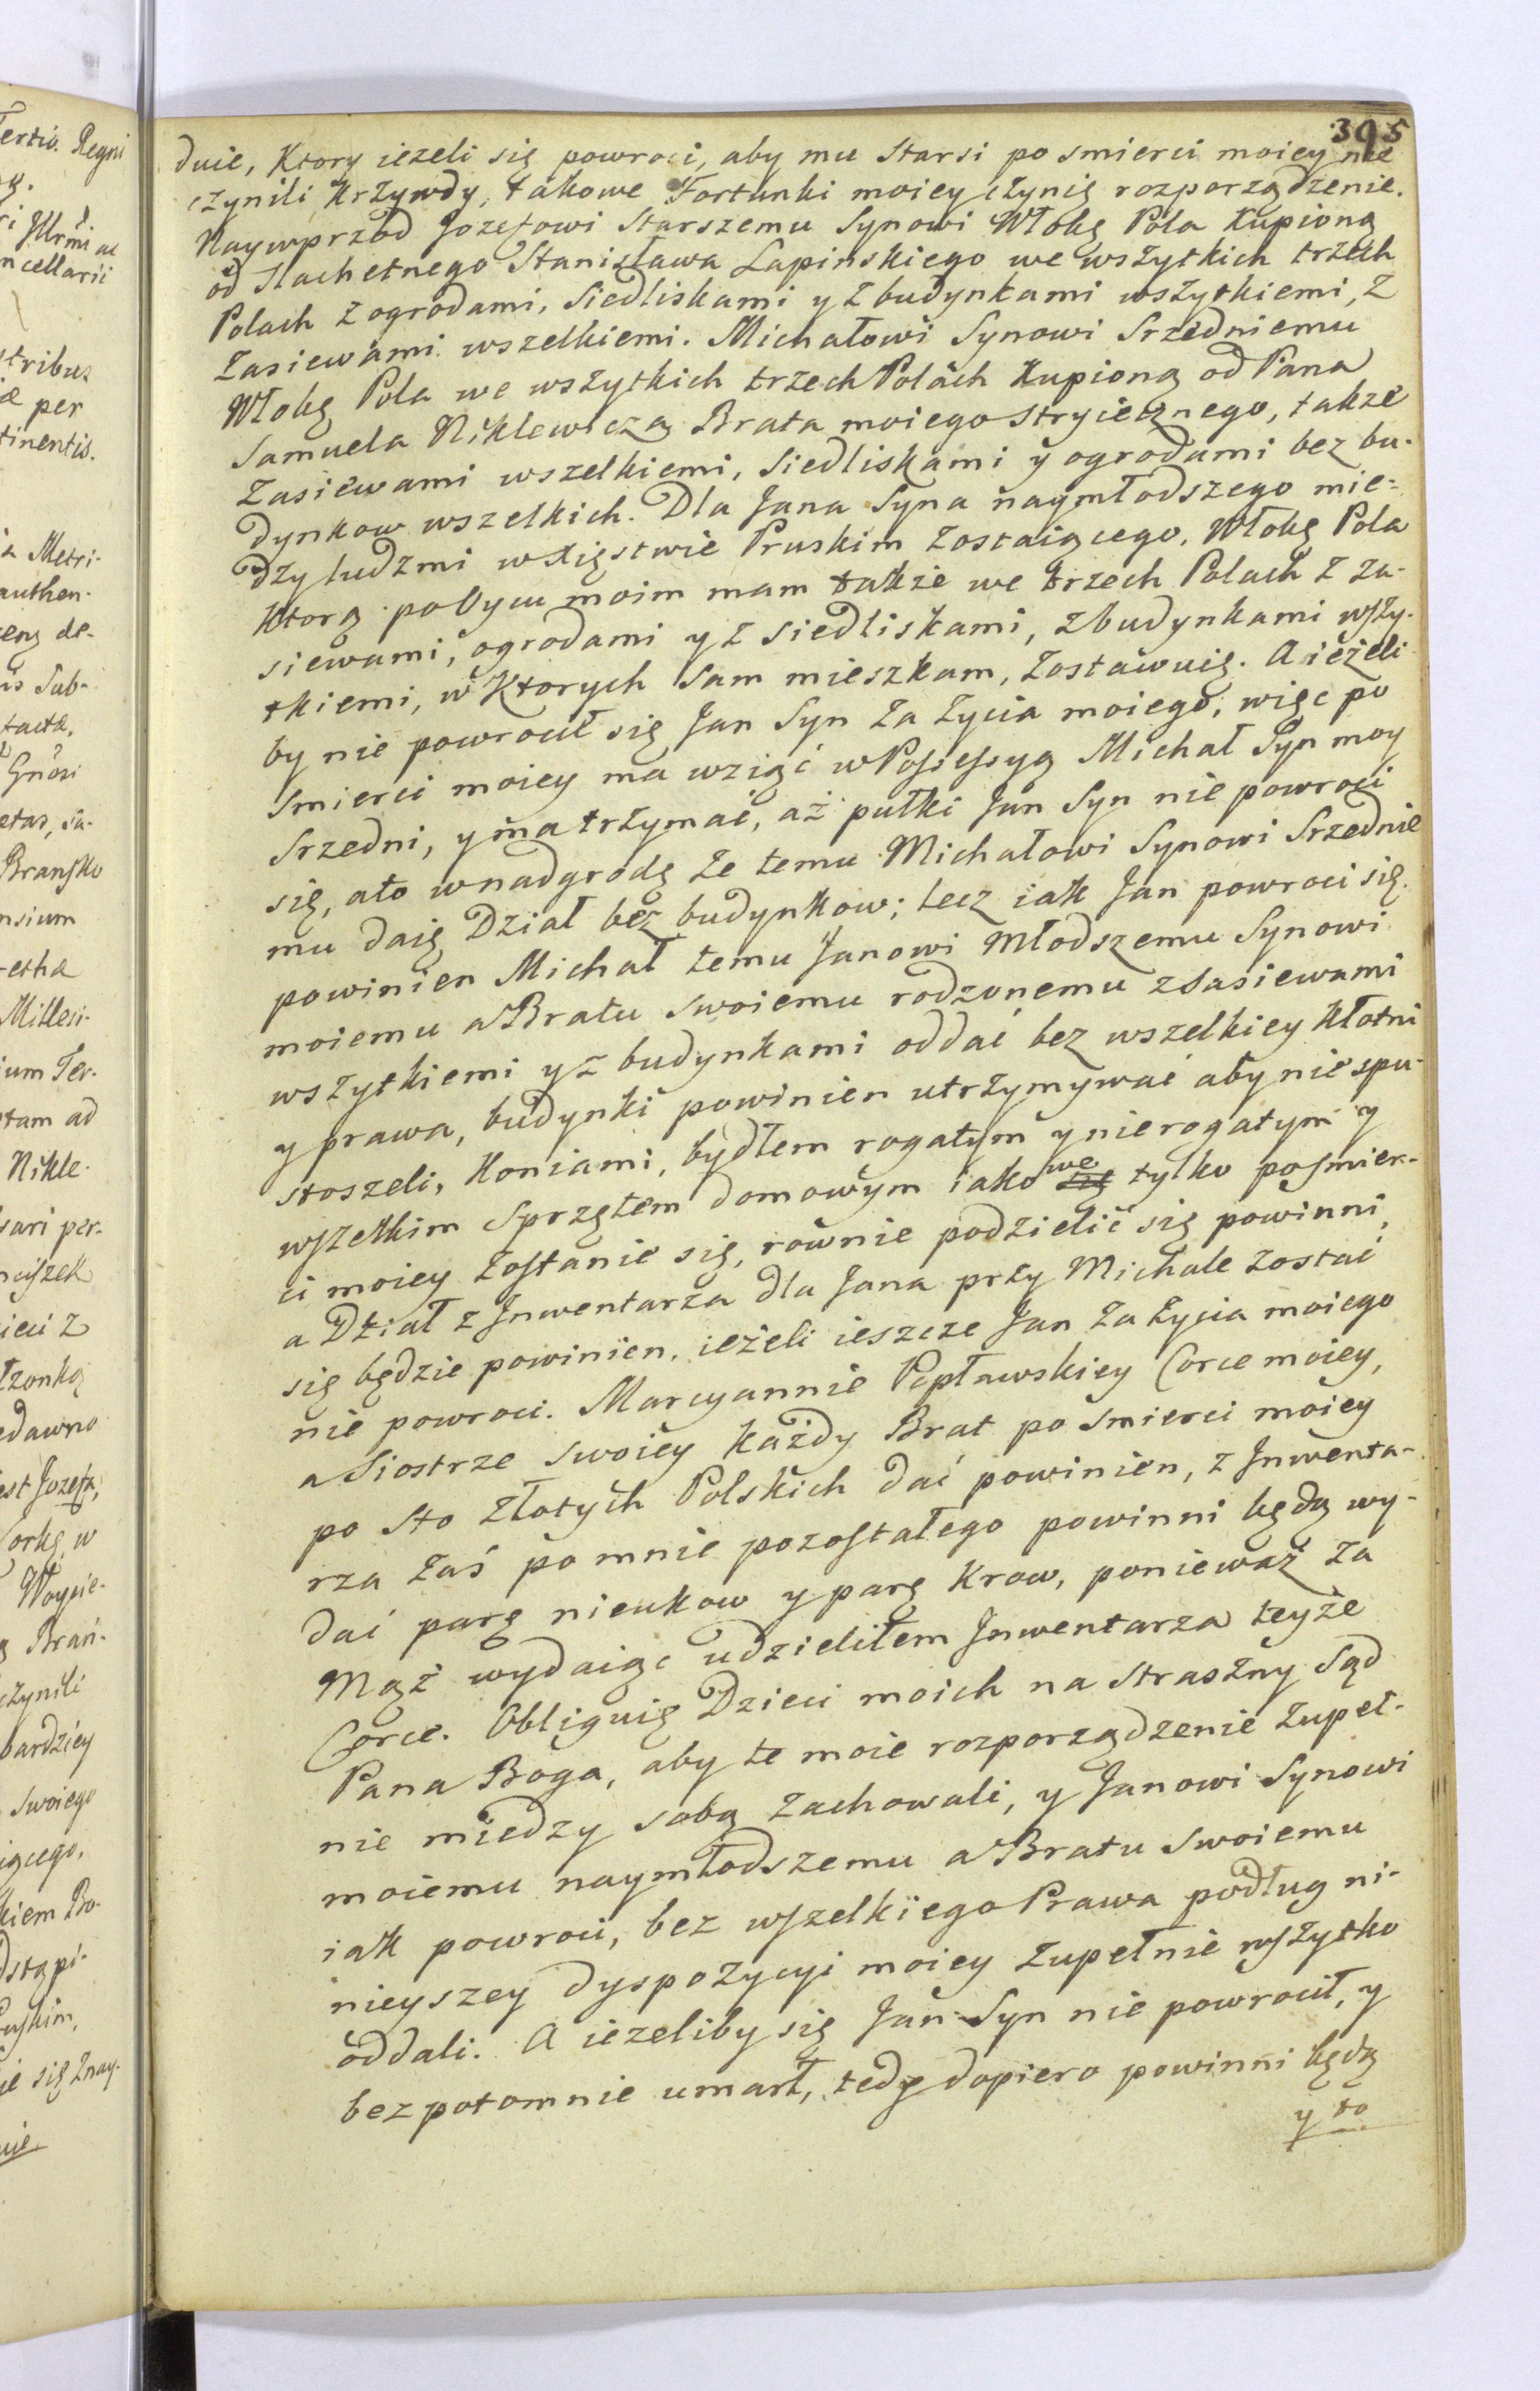 395
duie, Ktory ieżeli się powroci, aby mu Starsi po smierci moiey nie
czynili Krżywdy, takowe Fortunki moiey czynię rozporządzenie.
Naywprzod Jozefowi Starszemu Synowi Włokę Pola Kupioną
od Slachetnego Stanisława Lapinskiego we wszytkich trzech
Polach z ogrodami, Siedliskami y z budynkami wszytkiemi, z
Zasiewami wszelkiemi. Michałowi Synowi Srzedniemu
Włokę Pola we wszytkich trzech Polach Kupioną od Pana
Samuela Niklewicza Brata moiego Stryiecznego, takze
Zasiewami wszelkiemi, Siedliskami y ogrodami bez bu-
dynkow wszelkich. Dla Jana Syna naymłodszego mie-
dzy ludzmi w Xięstwie Pruskim Zostaiącego, Włokę Pola
Ktorą po Oycu moim mam także we trzech Polach z za-
siewami, ogrodami y z siedliskami, z budynkami wszy-
tkiemi, w Ktorych Sam mieszkam, Zostawuię. A ieżeli
by nie powrocił się Jan Syn Za życia moiego, więc po
Smierci moiey ma wziąć w Possessyą Michał Syn moy
Srzedni, y ma trżymać, aż pułki Jan Syn nie powroci
się, a to w nadgrodę że temu Michałowi Synowi Srzednie
mu daię Dział bez budynkow; lecz iak Jan powroci się.
powinien Michał temu Janowi Młodszemu Synowi
moiemu a Bratu swoiemu rodzonemu z Zasiewami
wszytkiemi y z budynkami oddać bez wszelkiey Kłotni
y prawa, budynki powinien utrżymywać aby nie spu-
stoszeli, Koniami, bydłem rogatym y nierogatym y
wszelkim Sprzętem domowym iako we się tylko po smier-
ci moiey Zostanie się, rownie podzielić się powinni,
a Dział z Jnwentarża dla Jana przy Michale zostać
się będzie powinien, ieżeli ieszcze Jan Za życia moiego
nie powroci. Marcyannie Popławskiey Corce moiey,
a Siostrze swoiey Każdy Brat po smierci moiey
po sto Złotych Polskich dać powinien, z Jnwenta-
rza Zaś po mnie pozostałego powinni będą wy-
dać parę nieukow y parę Krow, ponieważ za
Mąż wydaiąc udzieliłem Jnwentarza teyże
Corce. Obliguię Dzieci moich na Straszny Sąd
Pana Boga, aby te moie rozporządzenie Zupeł-
nie miedzy sobą zachowali, y Janowi Synowi
moiemu naymłodszemu a Bratu swoiemu
iak powroci, bez wszelkiego Prawa podług ni-
nieyszey dyspozycyi moiey Zupełnie wszytko
oddali. A ieżeliby się Jan Syn nie powrocił, y
bezpotomnie umarł, tedy dopiero powinni będą
y to